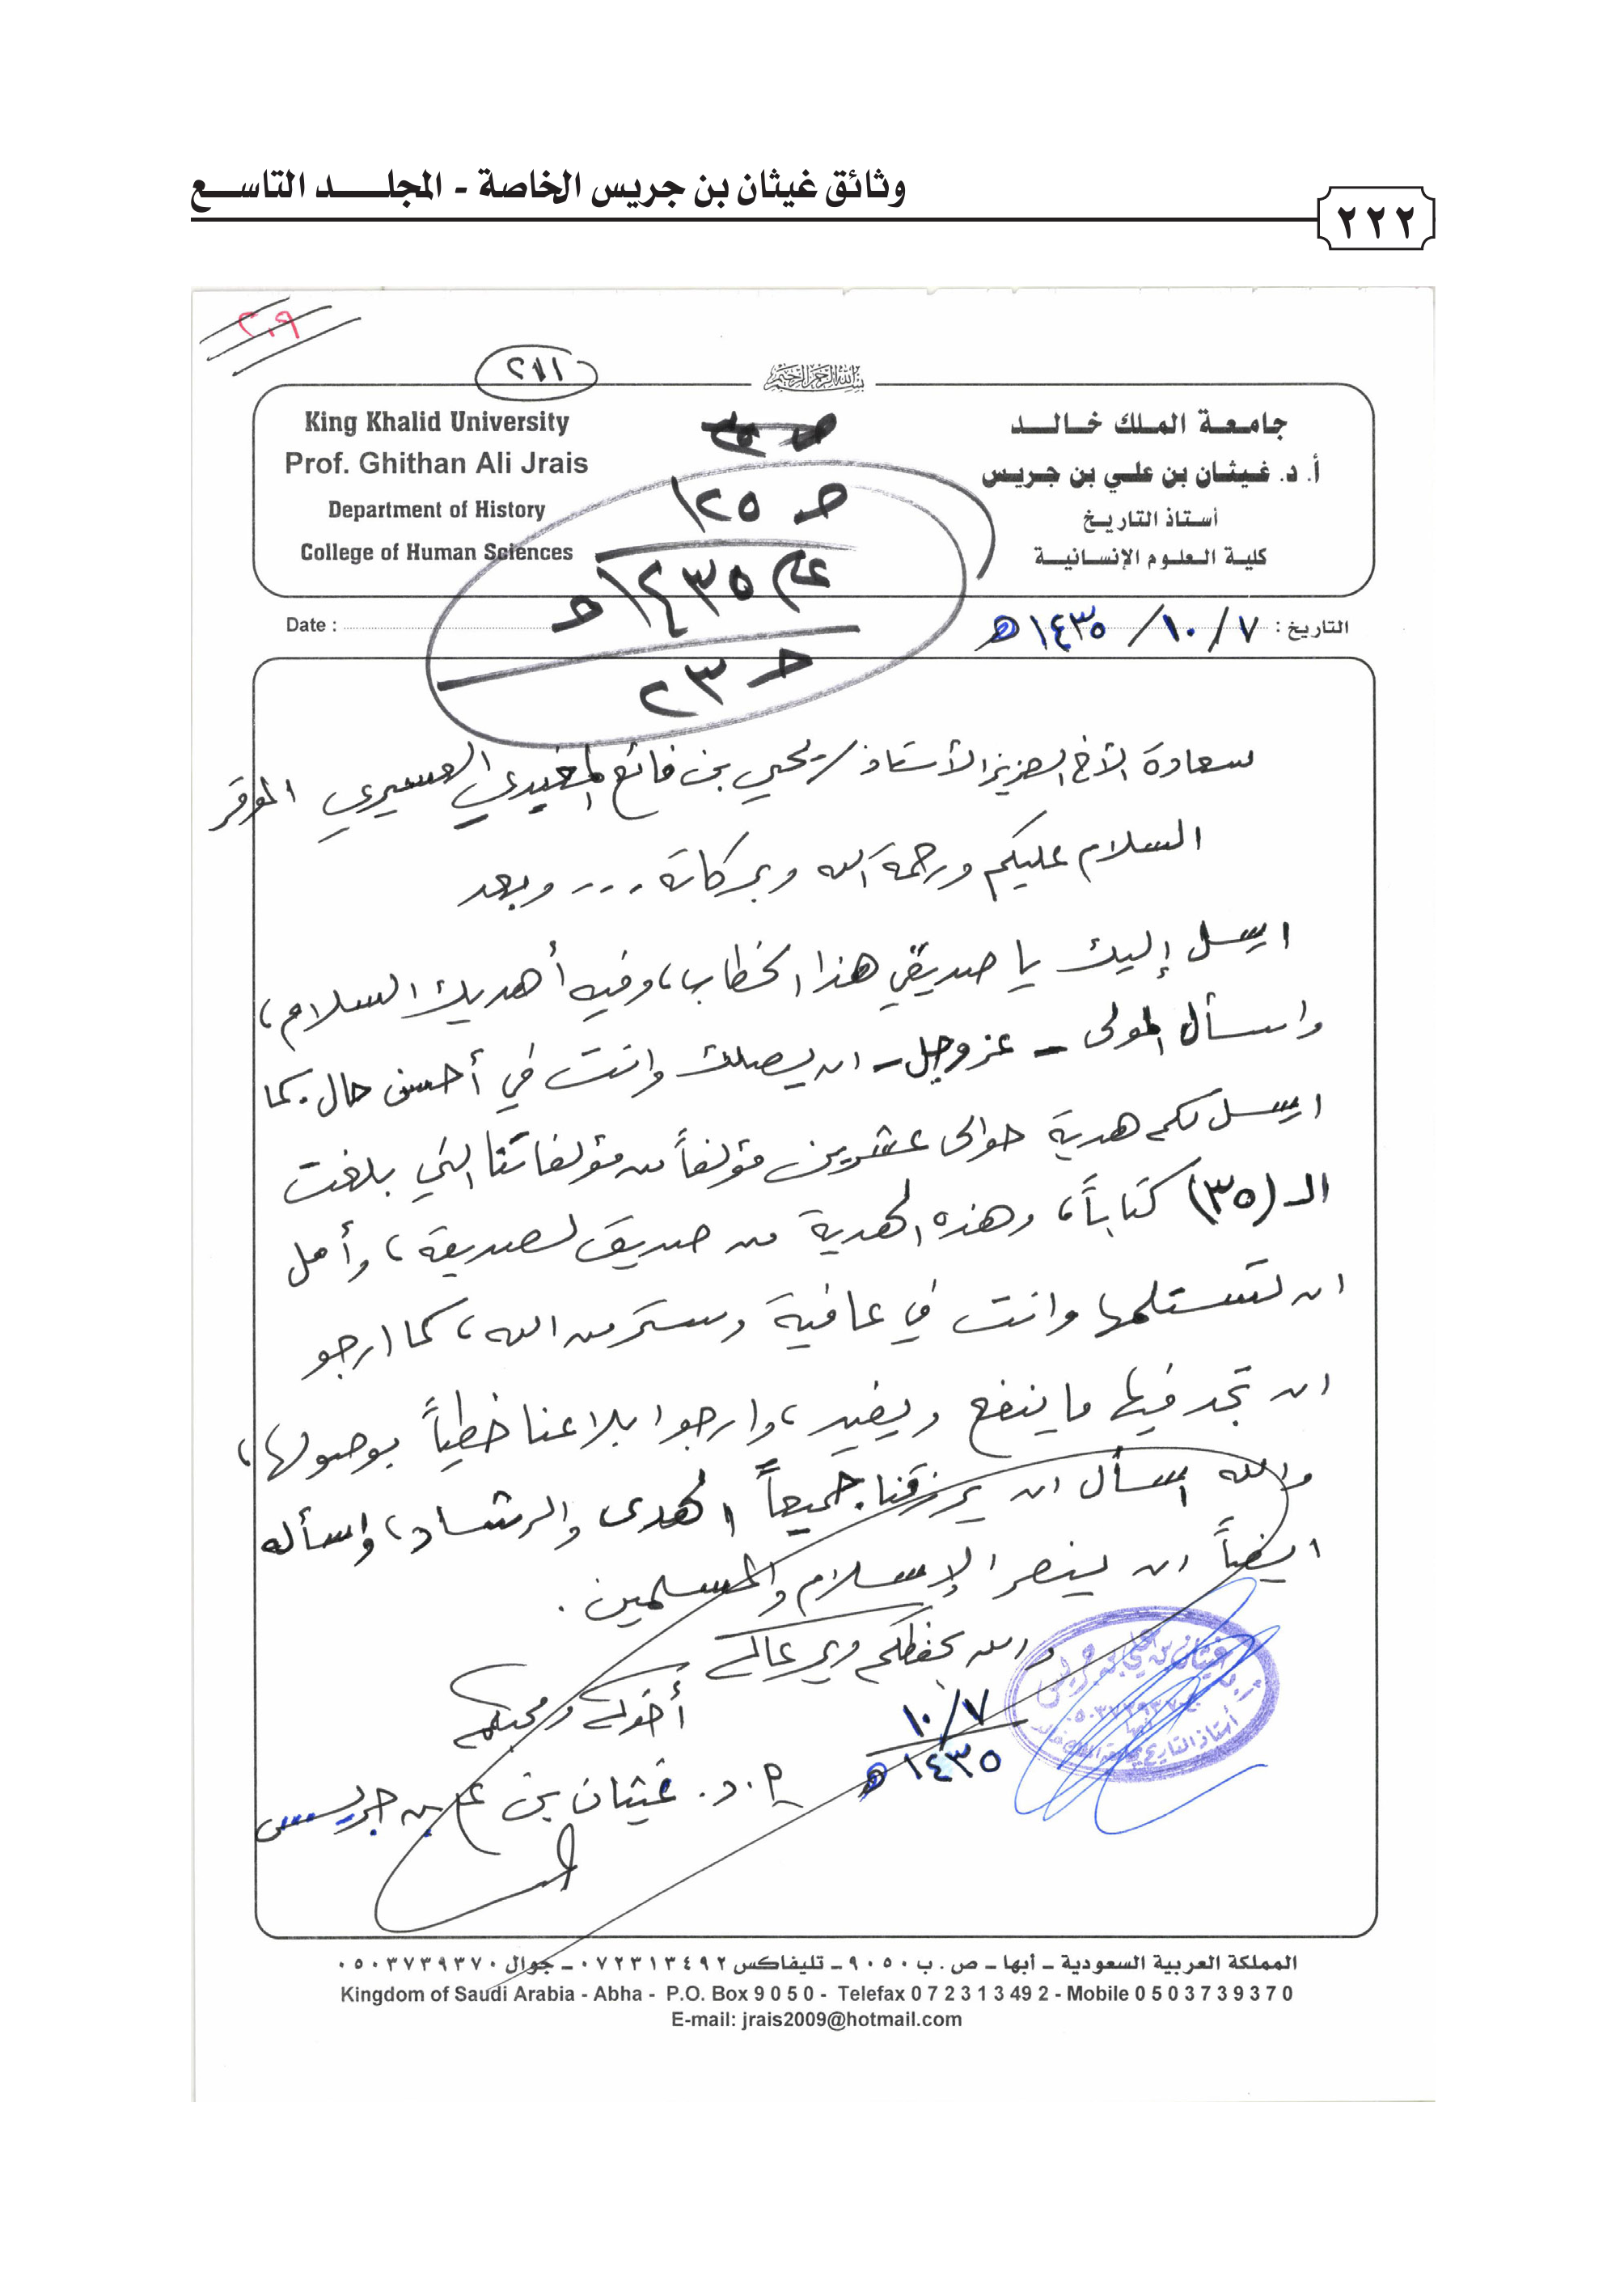 وثائق غيثان بن جريس الخاصة - المجلــــد التاســـع
٢٢٢
٢٠٩
٢١١
بسم الله الرحمن الرحيم
جامعة الملك خالد
أ. د. غيثان بن علي بن جريس
أستاذ التاريخ
كلية العلوم الإنسانية
King Khalid University
Prof. Ghithan Ali Jrais
Department of History
College of Human Sciences
ص ١٢٥
عام ١٤٣٥هـ
ح ٢٣
التاريخ : ٧ / ١٠ / ١٤٣٥هـ
Date :
سعادة الأخ العزيز الأستاذ / يحيى بن فائع المغيدي العسيري الموقر
السلام عليكم ورحمة الله وبركاته . . . وبعد
ارسل إليك يا صديقي هذا الخطاب، وفيه أهديك السلام،
واسأل المولى - عز وجل - ان يصلك وانت في أحسن حال. كما
ارسل لكم هدية حوالى عشرين مؤلفاً من مؤلفاتنا التي بلغت
الـ (٣٥) كتاباً، وهذه الهدية من صديق لصديقه، وأمل
ان تستلمها وانت في عافية وستر من الله، كما ارجو
ان تجد فيها ما ينفع ويفيد، وارجوا بلاغنا خطياً بوصولها،
والله اسأل ان يرزقنا جميعاً الهدى والرشاد، واسأله
ايضاً ان ينصر الإسلام والمسلمين.
والله يحفظكم ويرعاكم
أخوكم ومحبكم
٧/١٠
١٤٣٥هـ
أ. د. غيثان بن علي بن جريس
أ.د. غيثان بن علي بن جريس
٠٥٠٣٧٣٩٣٧٠
أبها
أستاذ التاريخ بجامعة الملك خالد
المملكة العربية السعودية ـ أبها ـ ص . ب ٩٠٥٠ ـ تليفاكس ٠٧٢٣١٣٤٩٢ ـ جوال ٠٥٠٣٧٣٩٣٧٠
Kingdom of Saudi Arabia - Abha - P.O. Box 9 0 5 0 - Telefax 0 7 2 3 1 3 49 2 - Mobile 0 5 0 3 7 3 9 3 7 0
E-mail: jrais2009@hotmail.com